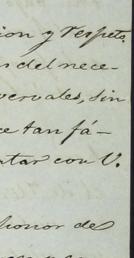 ion y respeto.
s del nece-
vervales, sin
ce tan fá-
ntar con V.
honor de